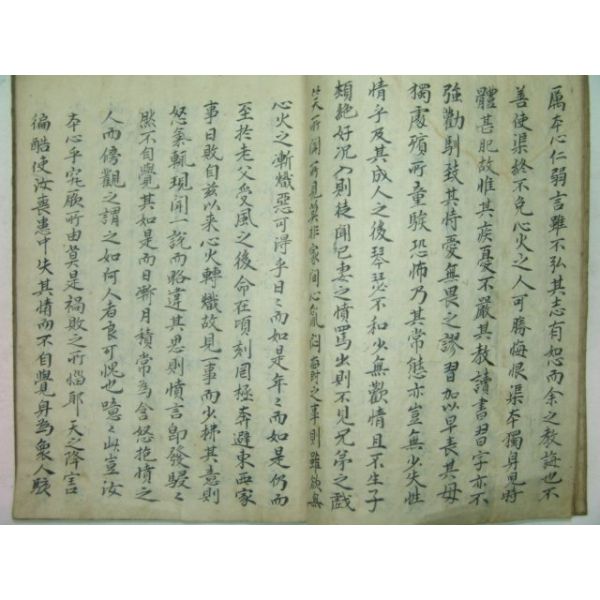 厲本心仁弱言雖不弘其志有恕而余之教誨也不
善使渠終不免心火之人可勝悔恨渠本獨身兒時
體甚肥故惟其疾憂不嚴其教讀書習字亦不
強勸馴致其恃愛無畏之謬習加以早喪其母
獨處殯所童騃恐怖乃其常態亦豈無少失性
情乎及其成人之後琴瑟不和少無歡情且不生子
頬絶好况入則徒聞己妻之憤罵出則不見兄弟之戲
笑所聞所見莫非家間心亂悶之事則雖欲無
心火之漸熾惡可淂乎日々而如是年々而如是仍而
至於老父受風之後命在頃刻罔極奔避東西家
事日敗自玆以来心火轉熾故見一事而少拂其意則
怒氣輒現聞一説而略違其思則憤言即發駸々
然不自覺其如是而日漸月積常為含怒抱憤之
人而傍觀之謂之如何人者良可愧也噫々此豈汝
本心乎究厥所由莫是禍敗之所惱耶天之降害
偏酷使汝喪患中失其情而不自覺身為衆人駭